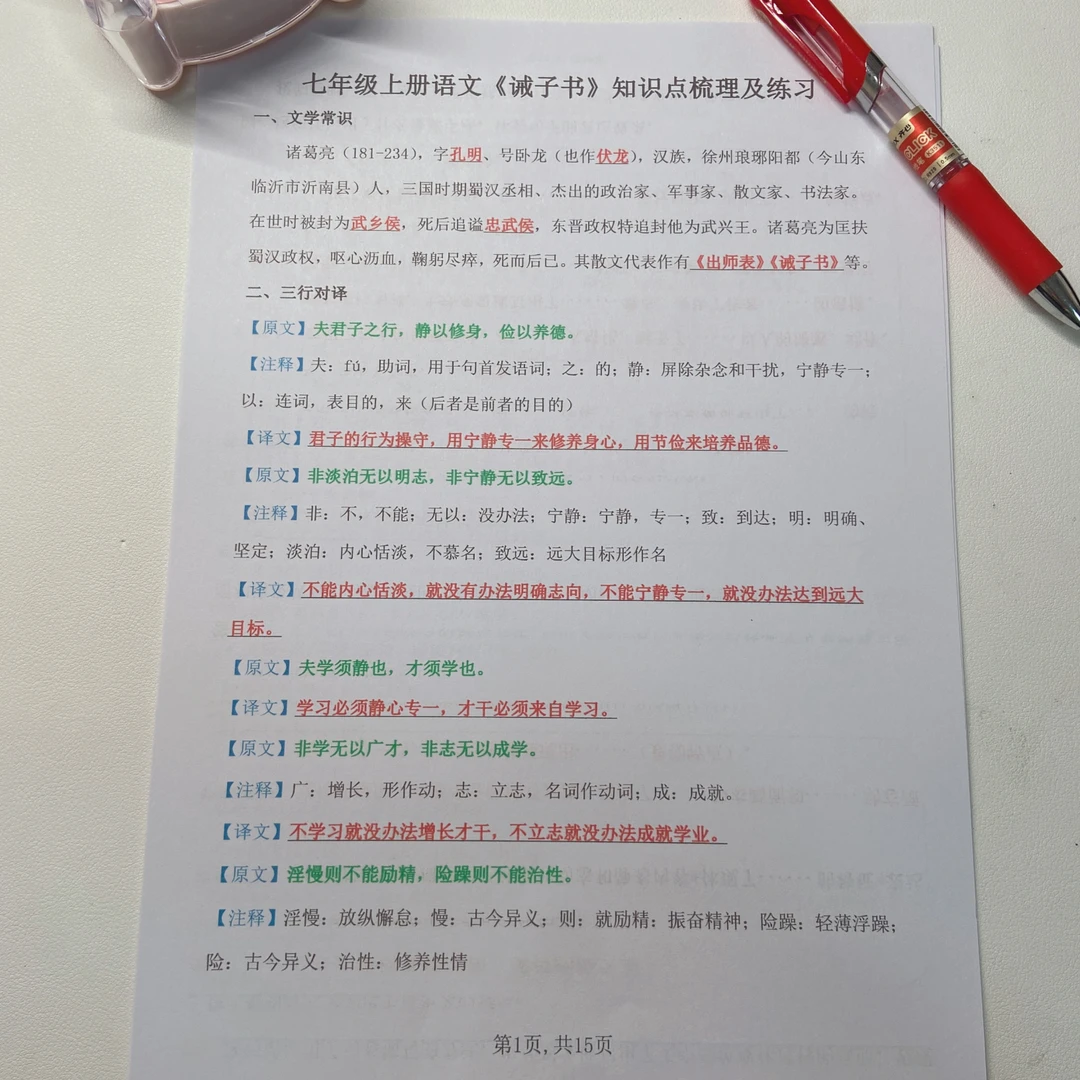 七年级上册语文《诫子书》知识点梳理及练习
一、文学常识
诸葛亮（181-234），字孔明、号卧龙（也作伏龙），汉族，徐州琅琊阳都（今山东
临沂市沂南县）人，三国时期蜀汉丞相、杰出的政治家、军事家、散文家、书法家。
在世时被封为武乡侯，死后追谥忠武侯，东晋政权特追封他为武兴王。诸葛亮为匡扶
蜀汉政权，呕心沥血，鞠躬尽瘁，死而后已。其散文代表作有《出师表》《诫子书》等。
二、三行对译
【原文】夫君子之行，静以修身，俭以养德。
【注释】夫：fú，助词，用于句首发语词；之：的；静：屏除杂念和干扰，宁静专一；
以：连词，表目的，来（后者是前者的目的）
【译文】君子的行为操守，用宁静专一来修养身心，用节俭来培养品德。
【原文】非淡泊无以明志，非宁静无以致远。
【注释】非：不，不能；无以：没办法；宁静：宁静，专一；致：到达；明：明确、
坚定；淡泊：内心恬淡，不慕名；致远：远大目标形作名
【译文】不能内心恬淡，就没有办法明确志向，不能宁静专一，就没办法达到远大
目标。
【原文】夫学须静也，才须学也。
【译文】学习必须静心专一，才干必须来自学习。
【原文】非学无以广才，非志无以成学。
【注释】广：增长，形作动；志：立志，名词作动词；成：成就。
【译文】不学习就没办法增长才干，不立志就没办法成就学业。
【原文】淫慢则不能励精，险躁则不能治性。
【注释】淫慢：放纵懈怠；慢：古今异义；则：就励精：振奋精神；险躁：轻薄浮躁；
险：古今异义；治性：修养性情
第1页,共15页
CLICK